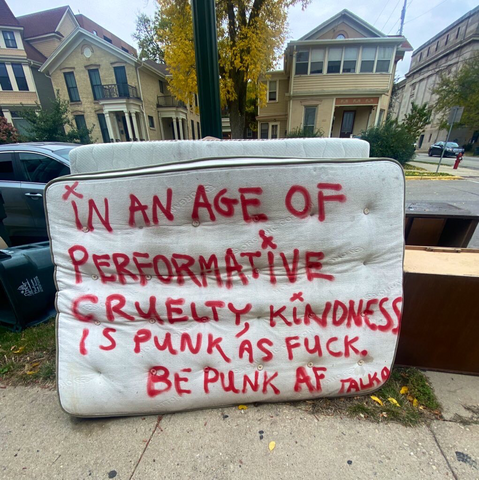 IN AN AGE OF
PERFORMATIVE
CRUELTY, KINDNESS
IS PUNK AS FUCK.
BE PUNK AF TALKO